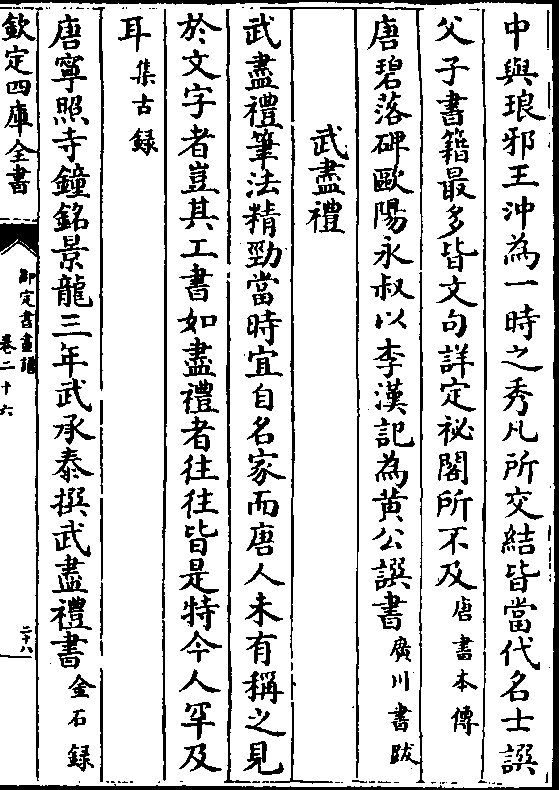 中與琅邪王沖為一時之秀凡所交結皆當代名士譔
父子書籍最多皆文句詳定祕閣所不及唐書本傳
唐碧落碑歐陽永叔以李漢記為黄公譔書廣川書跋
武盡禮
武盡禮筆法精勁當時宜自名家而唐人未有稱之見
於文字者豈其工書如盡禮者往往皆是特今人罕及
耳集古録
唐寧照寺鐘銘景龍三年武承泰撰武盡禮書金石録
欽定四庫全書
御定書畫譜
卷二十六
二十八